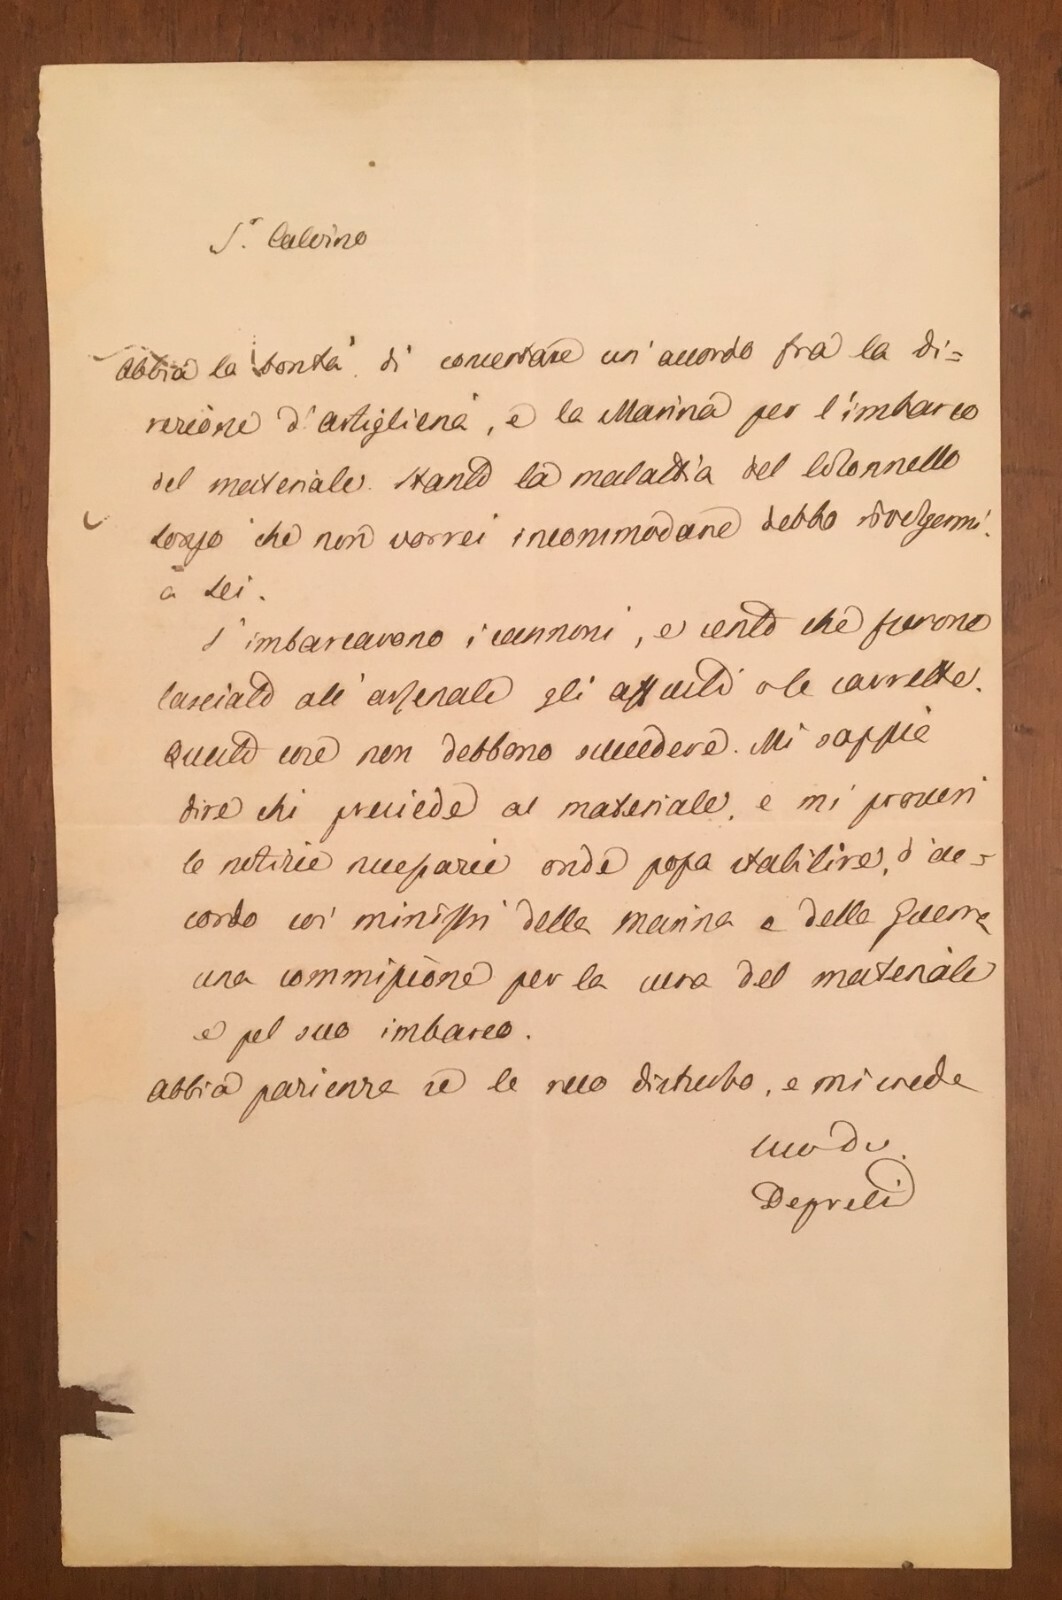 Sr. Calvino
Abbia la bontà di concertare un' accordo fra la di=
rezione d'artiglieria, e la Marina per l'imbarco
del materiale. Stante la malattia del Colonnello
che non vorrei incommodare debbo rivolgermi
a Lei.
S'imbarcavono i cannoni, e sento che furono
lasciate all' arsenale gli affusti o le carrette.
Queste cose non debbono succedere. Mi sappia
dire chi presiede al materiale, e mi procuri
le notizie necessarie onde possa stabilire, d'ac=
cordo coi ministri della marina e della guerra
una commissione per la cura del materiale
e pel suo imbarco.
Abbia pazienza se le reco disturbo, e mi creda
suo Dv.
Depretis